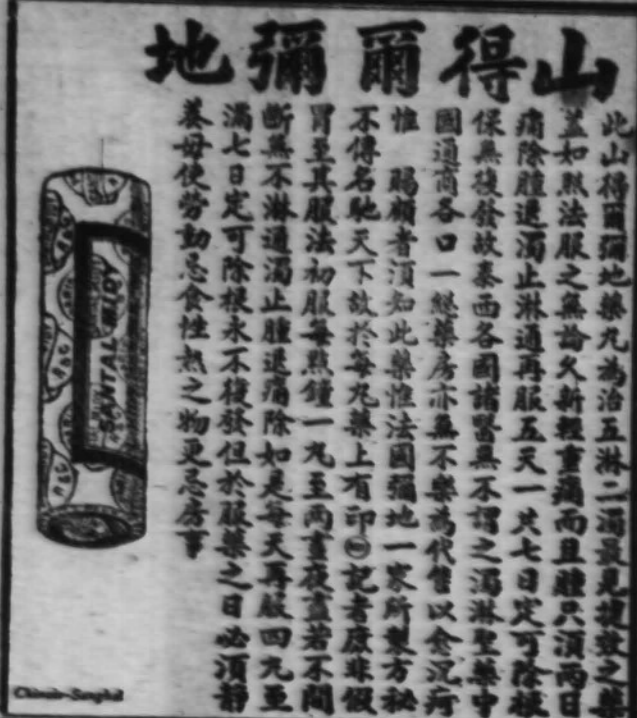 山得爾彌地
此山得爾彌地藥丸為治五淋二濁最見捷效之藥
蓋如照法服之無論久新輕重痛而且腫只須兩日
痛除腫退濁止淋通再服五天一共七日定可除根
保無復發故泰西各國諸醫無不謂之濁淋聖藥中
國通商各口一總藥房亦無不樂為代售以愈沉疴
惟 賜顧者須知此藥惟法國彌地一家所製方秘
不傳名馳天下故於每丸藥上有印記者庶非假
冒至其服法初服每點鐘一丸至兩晝夜蓋若不間
斷無不淋通濁止腫退痛除如是每天再服四丸至
滿七日定可除根永不復發但於服藥之日必須靜
養毋使勞動忌食性熱之物更忌房事
SANTAL MIDY